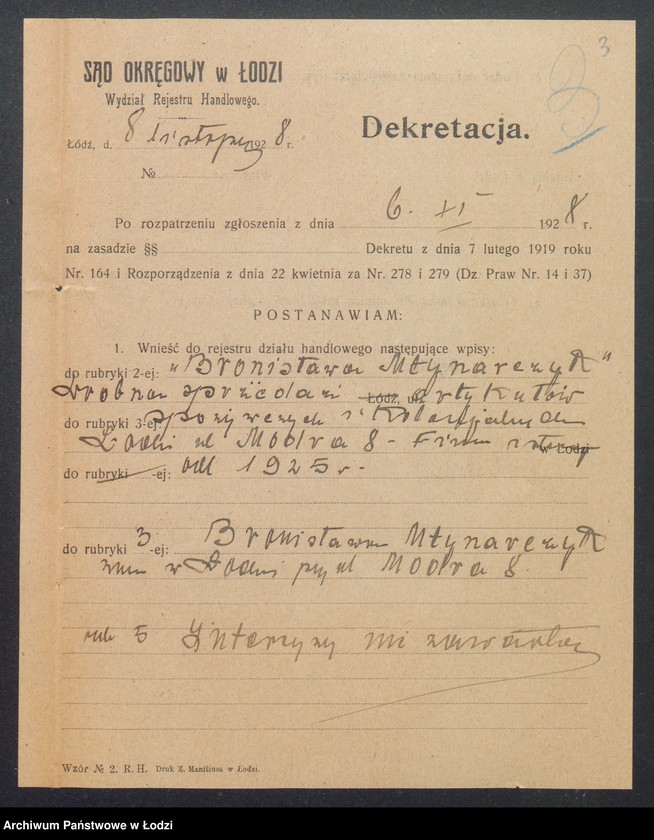 3
SĄD OKRĘGOWY w ŁODZI
Wydział Rejestru Handlowego.
Łódź, d. 8 listopad 1928 r.
Dekretacja.
№
Po rozpatrzeniu zgłoszenia z dnia 6. XI 1928 r.
na zasadzie §§ Dekretu z dnia 7 lutego 1919 roku
Nr. 164 i Rozporządzenia z dnia 22 kwietnia za Nr. 278 i 279 (Dz. Praw Nr. 14 i 37)
POSTANAWIAM:
1. Wnieść do rejestru działu handlowego następujące wpisy:
do rubryki 2-ej: „Bronisława Młynarczyk"
Drobna sprzedaż Łódź, ul. artykułów
do rubryki 3-ej: spożywczych i kolonjalnych
Łodzi ul Modra 8 - Firma istn w Łodzi
do rubryki -ej: od 1925 r.
do rubryki 3-ej: Bronisława Młynarczyk
zam w Łodzi przy ul Modra 8.
rub 5 Intercyzy nie zawarła
Wzór № 2. R. H. Druk Z. Manitiusa w Łodzi.
Archiwum Państwowe w Łodzi